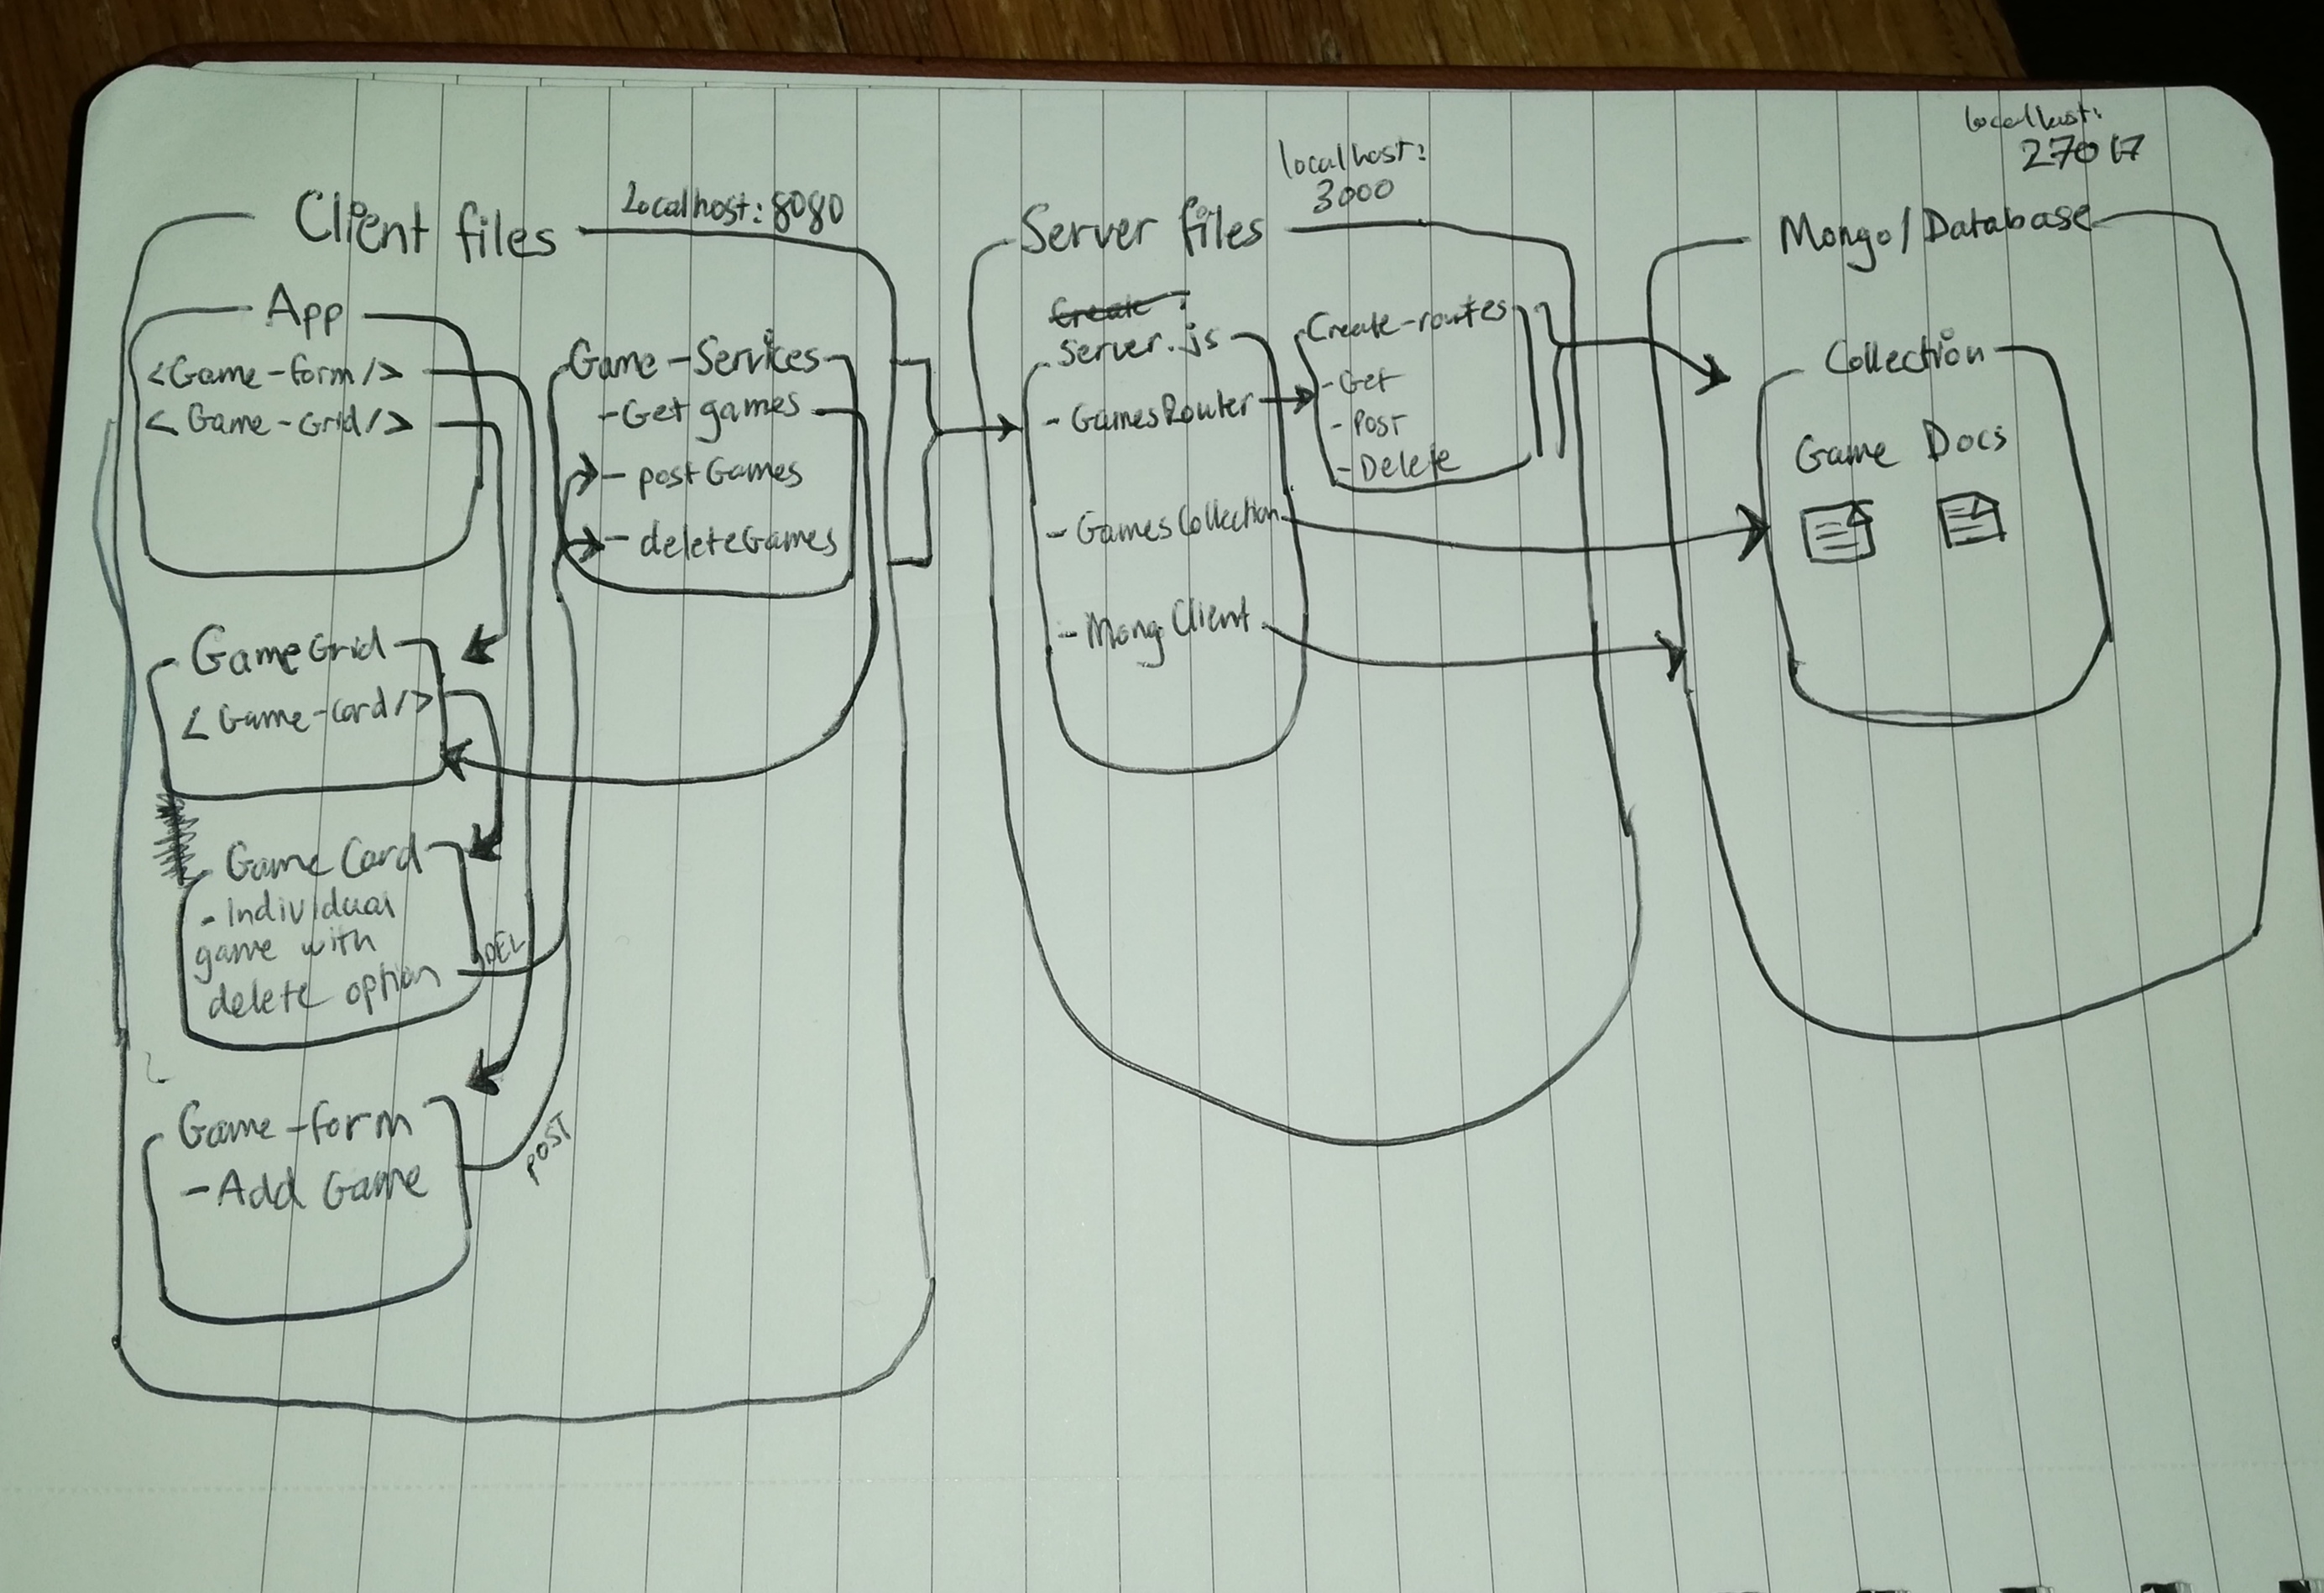 Client files
Localhost: 8080
App
<Game-form/>
<Game-Grid/>
Game-Services
-Get games
- postGames
- deleteGames
GameGrid
<Game-Card/>
Game Card
- Individual
game with
delete option
DEL
Game-form
- Add Game
POST
Server files
localhost:
3000
Create
Server.js
- GamesRouter
- GamesCollection
- MongoClient
Create-routes
- Get
- Post
- Delete
localhost:
27017
Mongo/Database
Collection
Game Docs